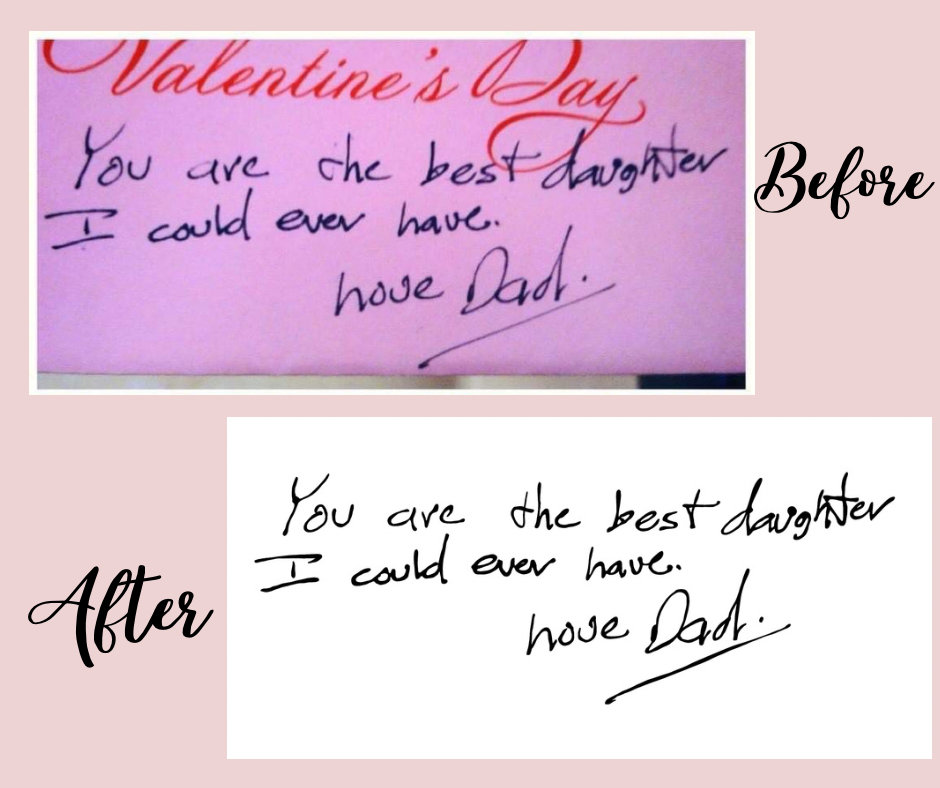 Valentine's Day
You are the best daughter
I could ever have.
Love Dad.
Before
You are the best daughter
I could ever have.
Love Dad.
After